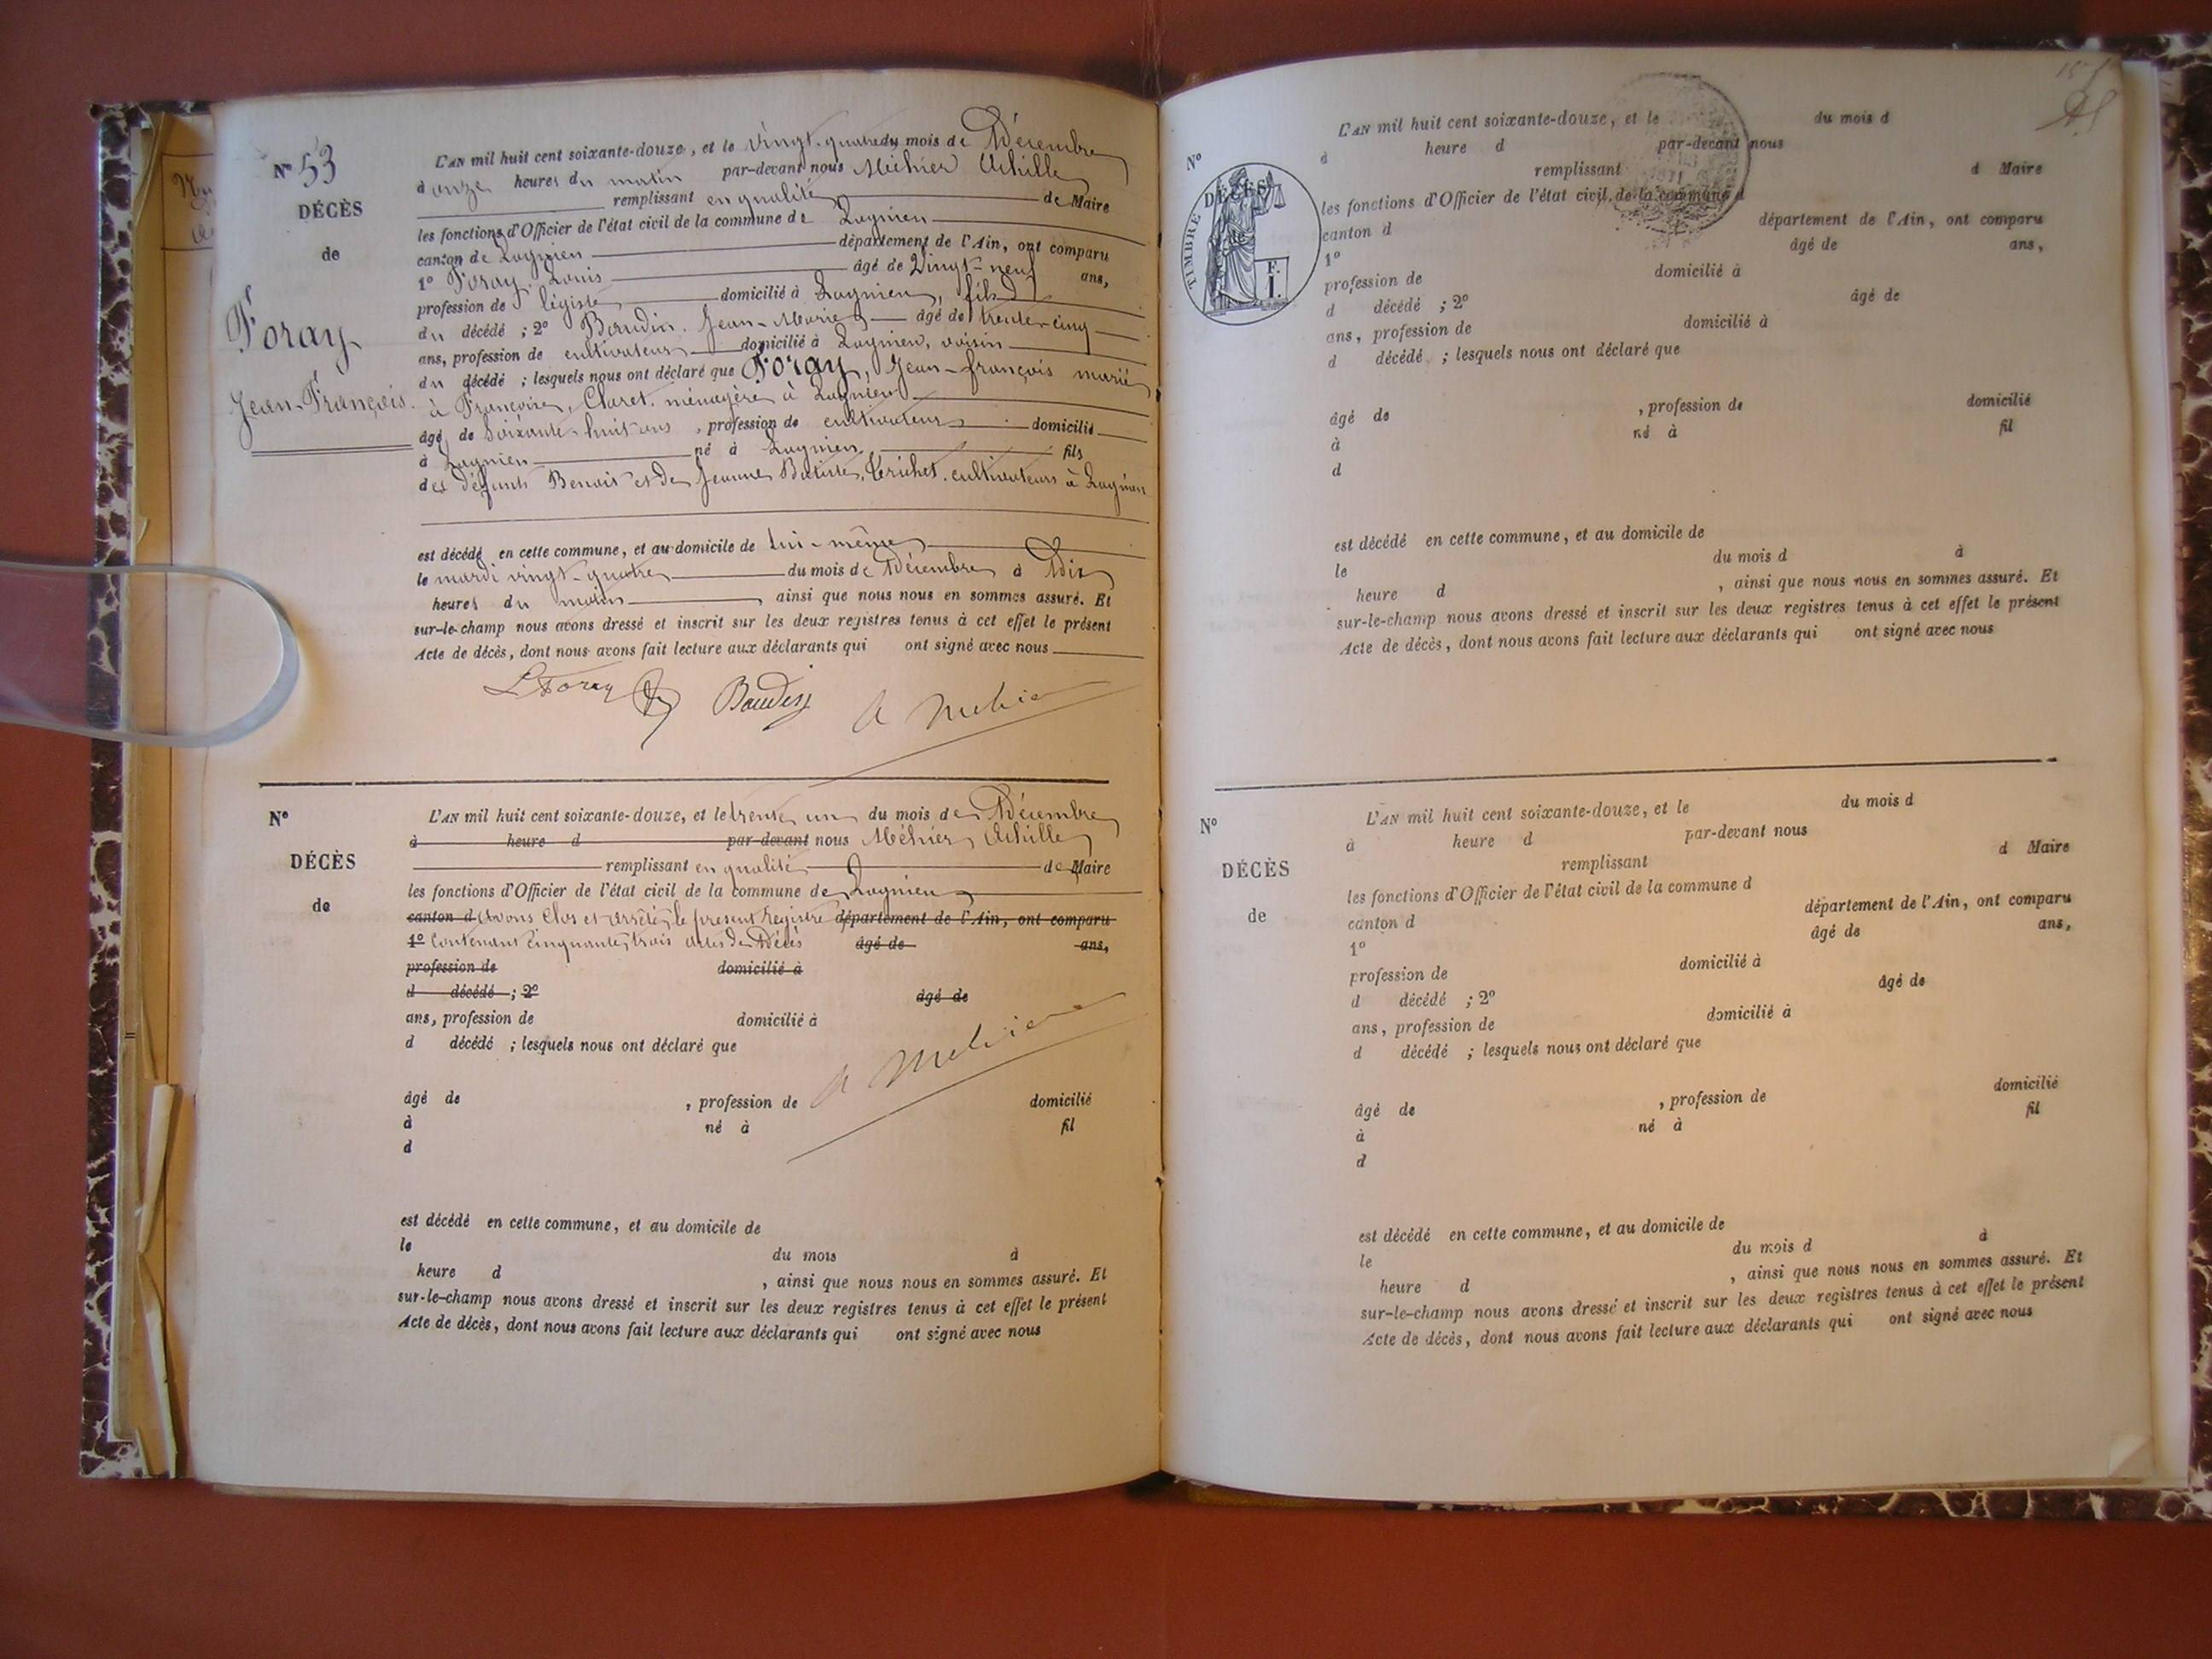 N° 53
DÉCÈS
de
Foray
Jean-François.
L'AN mil huit cent soixante-douze, et le vingt-quatre du mois de Décembre
à onze heures du matin par-devant nous Méhier Achille
remplissant en qualité de Maire
les fonctions d'Officier de l'état civil de la commune de Lagnieu
canton de Lagnieu département de l'Ain, ont comparu
1° Foray, Louis âgé de Vingt-neuf ans,
profession de légiste domicilié à Lagnieu, fils
du décédé ; 2° Baudin Jean-Marie âgé de trente-cinq
ans, profession de cultivateur domicilié à Lagnieu, voisin
du décédé ; lesquels nous ont déclaré que Foray, Jean-françois marié
à Françoise, Claret. ménagère à Lagnieu
âgé de Soixante-huit ans , profession de cultivateur domicilié
à Lagnieu né à Lagnieu fils
des défunts Benoit et de Jeanne Batiste, cultivateurs à Lagnieu
est décédé en cette commune, et au domicile de lui-même
le mardi vingt-quatre du mois de Décembre à Dix
heures du matin ainsi que nous nous en sommes assuré. Et
sur-le-champ nous avons dressé et inscrit sur les deux registres tenus à cet effet le présent
Acte de décès, dont nous avons fait lecture aux déclarants qui ont signé avec nous
L Foray Baudin A Mehier
N°
DÉCÈS
de
L'AN mil huit cent soixante-douze, et le trente un du mois de Décembre
à heure d par-devant nous Méhier Achille
remplissant en qualité de Maire
les fonctions d'Officier de l'état civil de la commune de Lagnieu
canton d avons Clos et arrêté le présent Registre département de l'Ain, ont comparu
1° Contenant cinquante trois actes de Décès âgé de ans,
profession de domicilié à
d décédé ; 2° âgé de
ans, profession de domicilié à
d décédé ; lesquels nous ont déclaré que
A Mehier
âgé de , profession de domicilié
à né à fil
d
est décédé en cette commune, et au domicile de
le du mois à
heure d , ainsi que nous nous en sommes assuré. Et
sur-le-champ nous avons dressé et inscrit sur les deux registres tenus à cet effet le présent
Acte de décès, dont nous avons fait lecture aux déclarants qui ont signé avec nous
N°
DÉCÈS
de
TIMBRE
F.
I.
L'AN mil huit cent soixante-douze, et le du mois d
à heure d par-devant nous
remplissant d Maire
les fonctions d'Officier de l'état civil de la commune d
canton d département de l'Ain, ont comparu
1° âgé de ans,
profession de domicilié à
d décédé ; 2° âgé de
ans, profession de domicilié à
d décédé ; lesquels nous ont déclaré que
âgé de , profession de domicilié
à né à fil
d
est décédé en cette commune, et au domicile de
le du mois d à
heure d , ainsi que nous nous en sommes assuré. Et
sur-le-champ nous avons dressé et inscrit sur les deux registres tenus à cet effet le présent
Acte de décès, dont nous avons fait lecture aux déclarants qui ont signé avec nous
N°
DÉCÈS
de
L'AN mil huit cent soixante-douze, et le du mois d
à heure d par-devant nous
remplissant d Maire
les fonctions d'Officier de l'état civil de la commune d
canton d département de l'Ain, ont comparu
1° âgé de ans,
profession de domicilié à
d décédé ; 2° âgé de
ans, profession de domicilié à
d décédé ; lesquels nous ont déclaré que
âgé de , profession de domicilié
à né à fil
d
est décédé en cette commune, et au domicile de
le du mois d à
heure d , ainsi que nous nous en sommes assuré. Et
sur-le-champ nous avons dressé et inscrit sur les deux registres tenus à cet effet le présent
Acte de décès, dont nous avons fait lecture aux déclarants qui ont signé avec nous